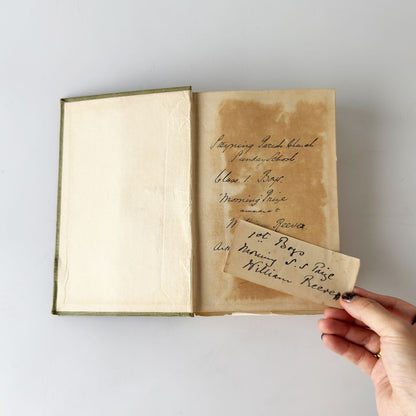 Parish Church
Sunday School
Class 1. Boys
Morning Prize
W Reeve
1st Boys
Morning S.S Prize
William Reeve